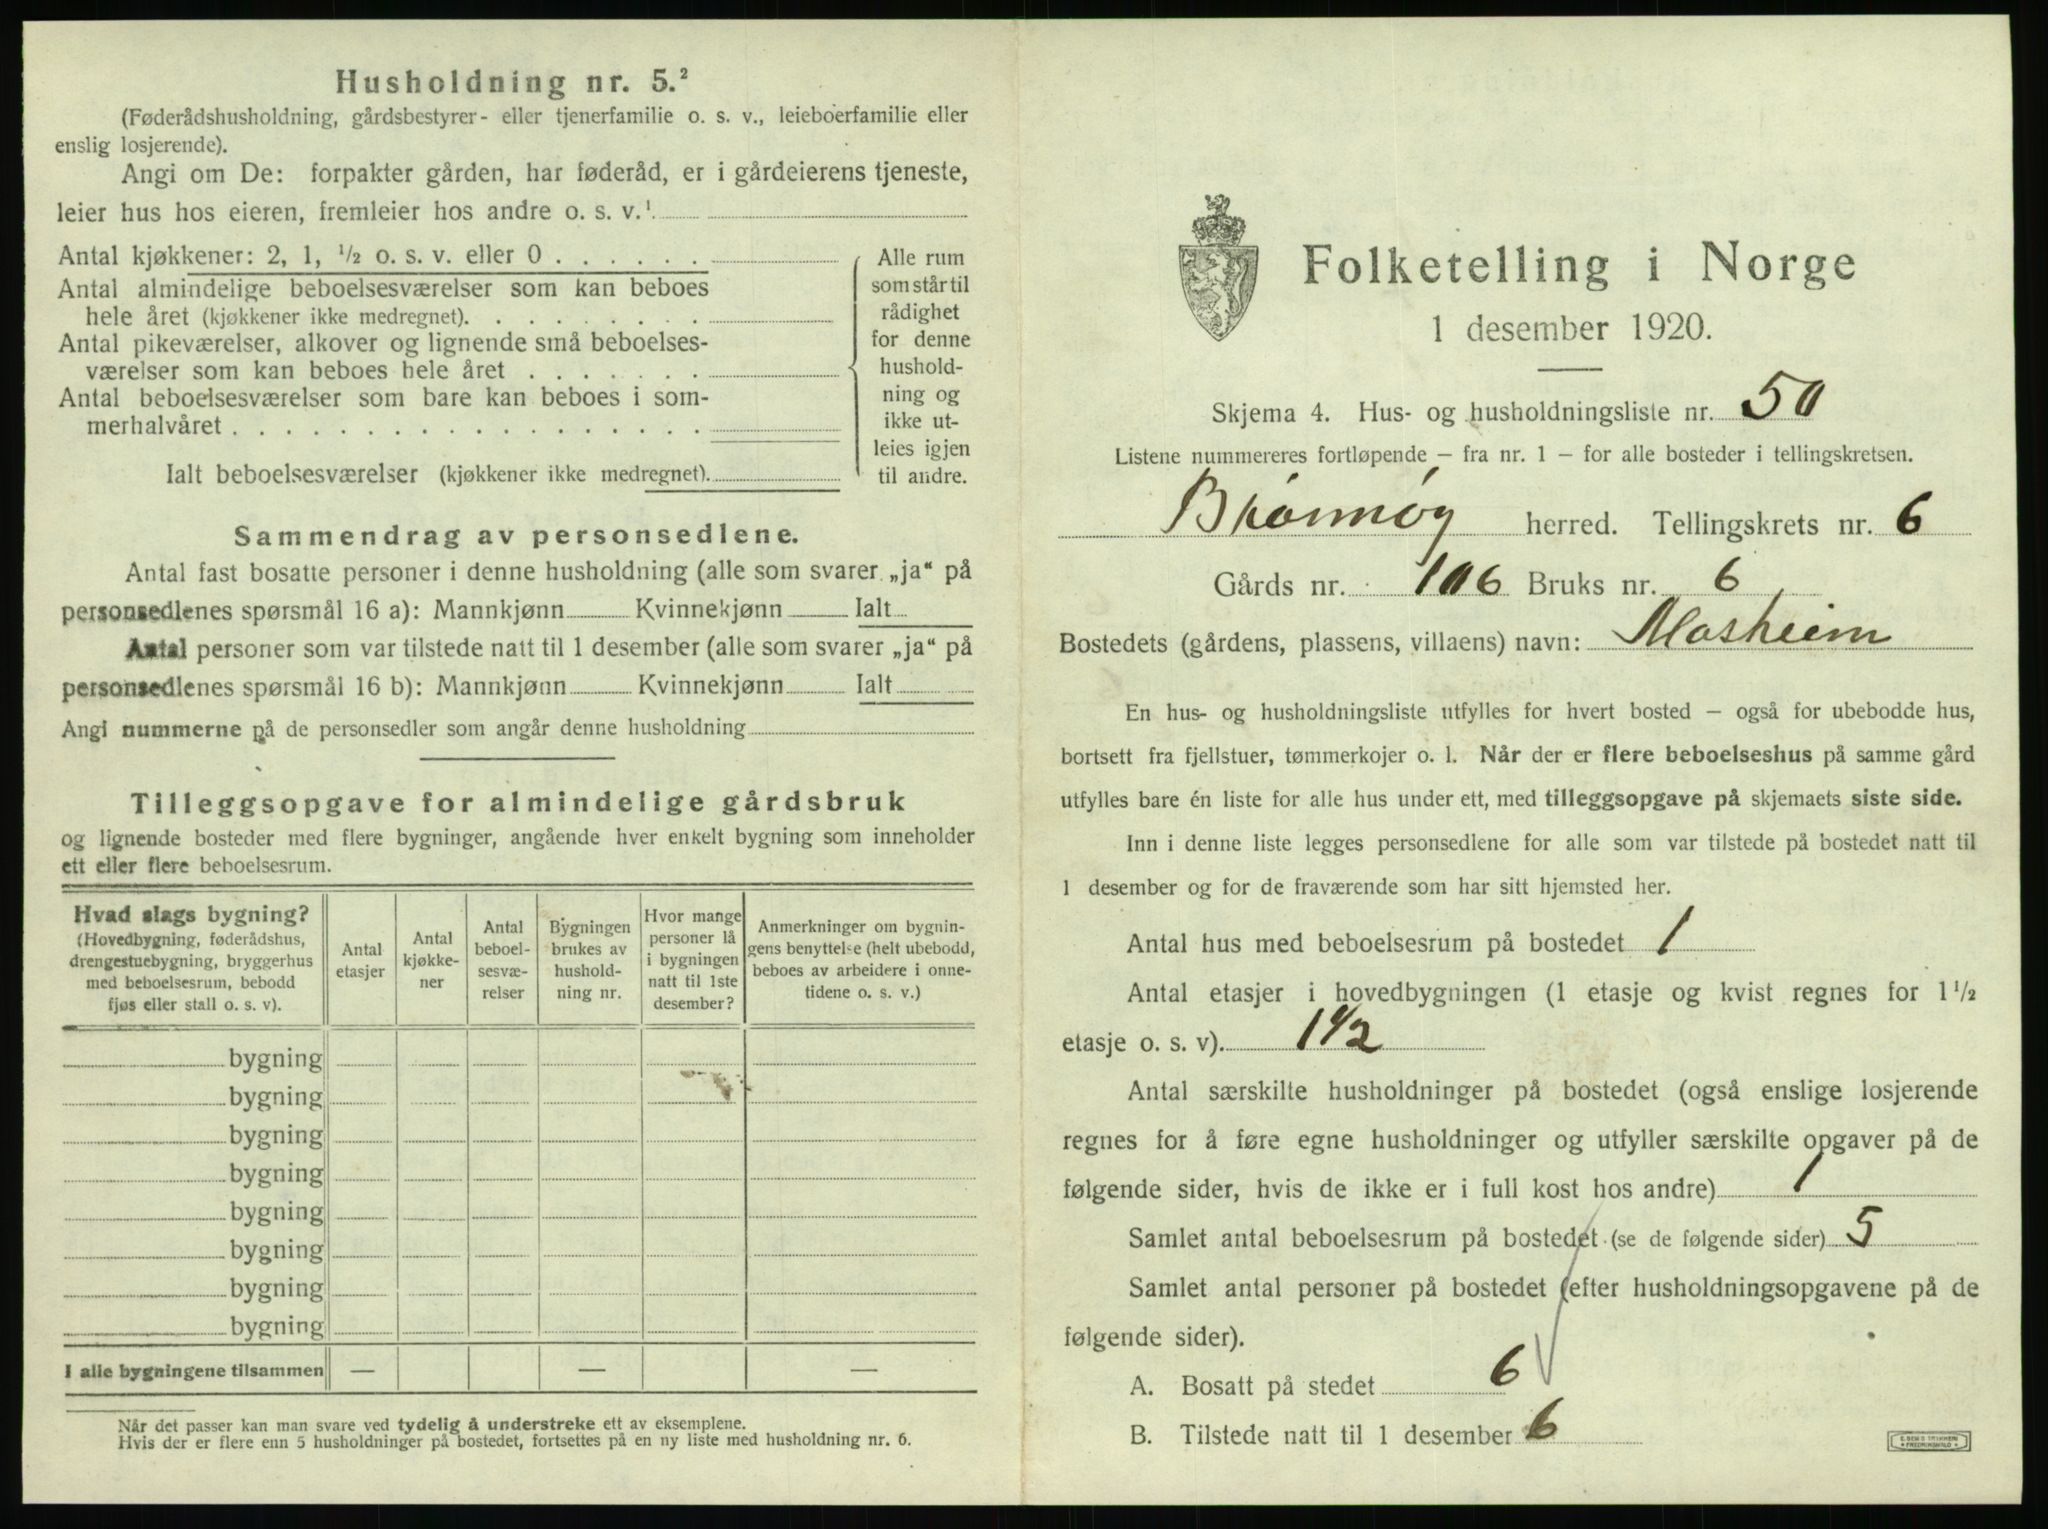 Husholdning nr. 5.²
(Føderådshusholdning, gårdsbestyrer- eller tjenerfamilie o. s. v., leieboerfamilie eller
enslig losjerende).
Angi om De: forpakter gården, har føderåd, er i gårdeierens tjeneste,
leier hus hos eieren, fremleier hos andre o. s. v.¹
Antal kjøkkener: 2, 1, ½ o. s. v. eller 0 . . . . . .
Antal almindelige beboelsesværelser som kan beboes
hele året (kjøkkener ikke medregnet). . . . . . . . .
Antal pikeværelser, alkover og lignende små beboelses-
værelser som kan beboes hele året . . . . . . .
Antal beboelsesværelser som bare kan beboes i som-
merhalvåret . . . . . . . . . . . . . . . . . .
Ialt beboelsesværelser (kjøkkener ikke medregnet).
Alle rum
som står til
rådighet
for denne
hushold-
ning og
ikke ut-
leies igjen
til andre.
Sammendrag av personsedlene.
Antal fast bosatte personer i denne husholdning (alle som svarer „ja“ på
personsedlenes spørsmål 16 a): Mannkjønn Kvinnekjønn Ialt
Antal personer som var tilstede natt til 1 desember (alle som svarer „ja“ på
personsedlenes spørsmål 16 b): Mannkjønn Kvinnekjønn Ialt
Angi nummerne på de personsedler som angår denne husholdning
Tilleggsopgave for almindelige gårdsbruk
og lignende bosteder med flere bygninger, angående hver enkelt bygning som inneholder
ett eller flere beboelsesrum.
Hvad slags bygning?
(Hovedbygning, føderådshus,
drengestuebygning, bryggerhus
med beboelsesrum, bebodd
fjøs eller stall o. s. v).
Antal
etasjer
Antal
kjøkke-
ner
Antal
beboel-
sesvæ-
relser
Bygningen
brukes av
hushold-
ning nr.
Hvor mange
personer lå
i bygningen
natt til 1ste
desember?
Anmerkninger om bygnin-
gens benyttelse (helt ubebodd,
beboes av arbeidere i onne-
tidene o. s. v.)
bygning
bygning
bygning
bygning
bygning
bygning
bygning
bygning
I alle bygningene tilsammen — — —
Når det passer kan man svare ved tydelig å understreke ett av eksemplene.
Hvis der er flere enn 5 husholdninger på bostedet, fortsettes på en ny liste med husholdning nr. 6.
Folketelling i Norge
1 desember 1920.
Skjema 4. Hus- og husholdningsliste nr. 50
Listene nummereres fortløpende – fra nr. 1 – for alle bosteder i tellingskretsen.
Brønnøy herred. Tellingskrets nr. 6
Gårds nr. 106 Bruks nr. 6
Bostedets (gårdens, plassens, villaens) navn: Mosheim
En hus- og husholdningsliste utfylles for hvert bosted – også for ubebodde hus,
bortsett fra fjellstuer, tømmerkojer o. l. Når der er flere beboelseshus på samme gård
utfylles bare én liste for alle hus under ett, med tilleggsopgave på skjemaets siste side.
Inn i denne liste legges personsedlene for alle som var tilstede på bostedet natt til
1 desember og for de fraværende som har sitt hjemsted her.
Antal hus med beboelsesrum på bostedet 1
Antal etasjer i hovedbygningen (1 etasje og kvist regnes for 1½
etasje o. s. v). 1 1/2
Antal særskilte husholdninger på bostedet (også enslige losjerende
regnes for å føre egne husholdninger og utfyller særskilte opgaver på de
følgende sider, hvis de ikke er i full kost hos andre) 1
Samlet antal beboelsesrum på bostedet (se de følgende sider) 5
Samlet antal personer på bostedet (efter husholdningsopgavene på de
følgende sider).
A. Bosatt på stedet 6
B. Tilstede natt til 1 desember 6